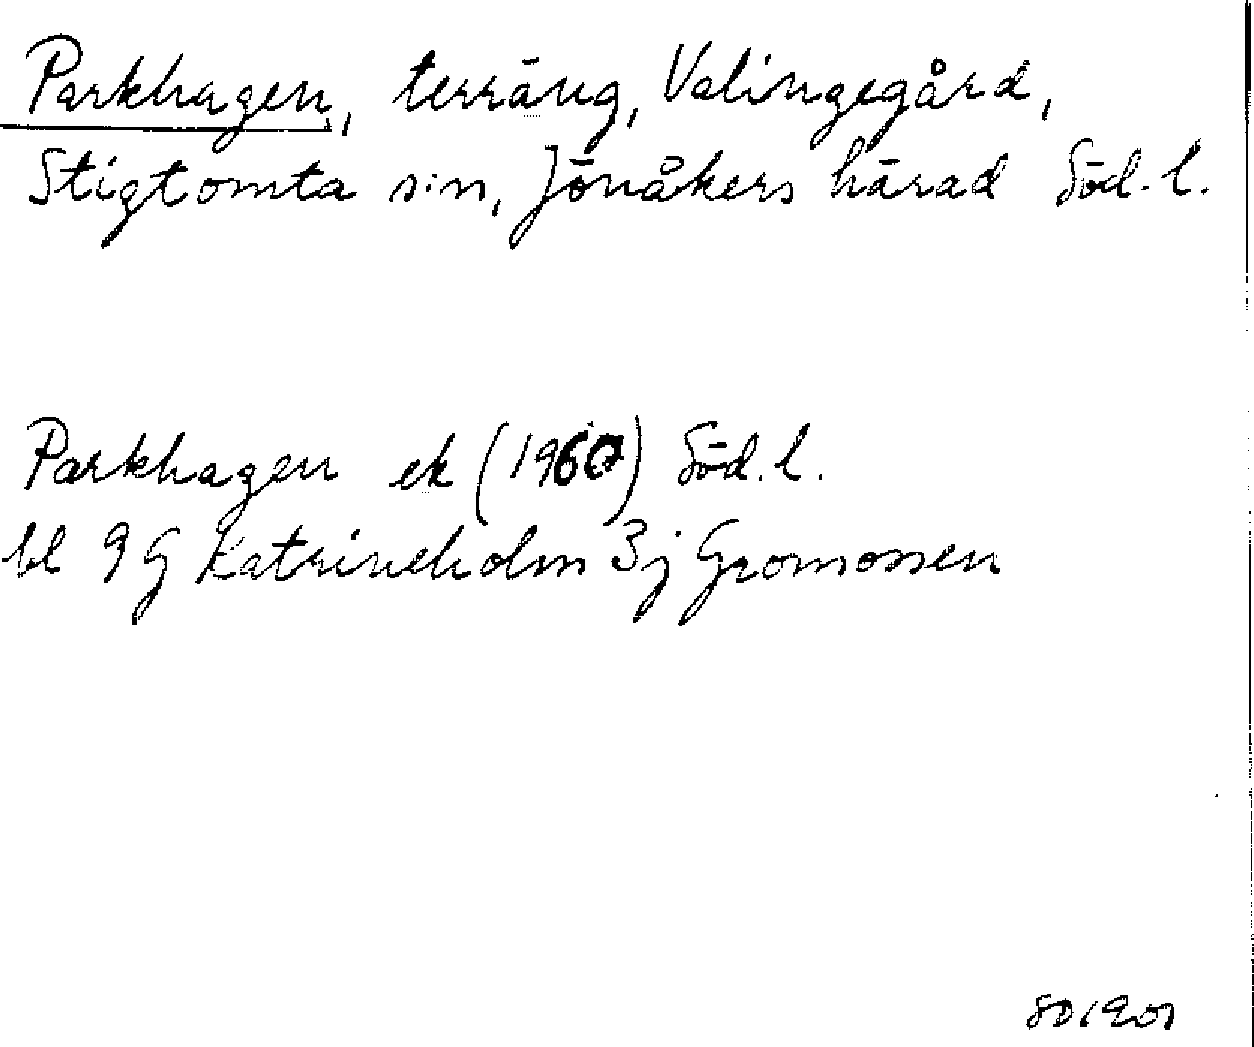 Parkhagen, terräng, Valingegård,
Stigtomta s:n, Jönåkers härad Söd. l.
Parkhagen ek (1960) Söd. l.
bl 9G Katrineholm 3j Gromossen